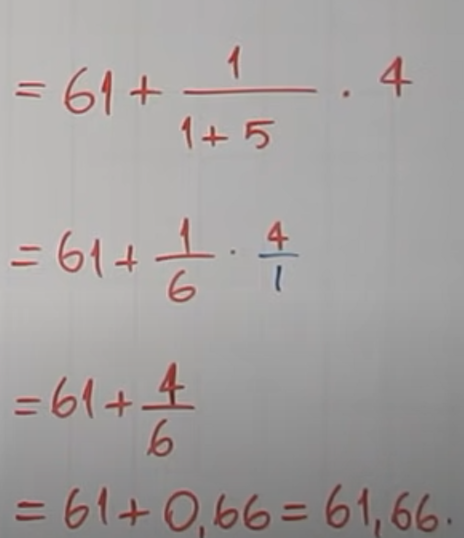 = 61 + 1/(1 + 5) · 4
= 61 + 1/6 · 4/1
= 61 + 4/6
= 61 + 0,66 = 61,66.